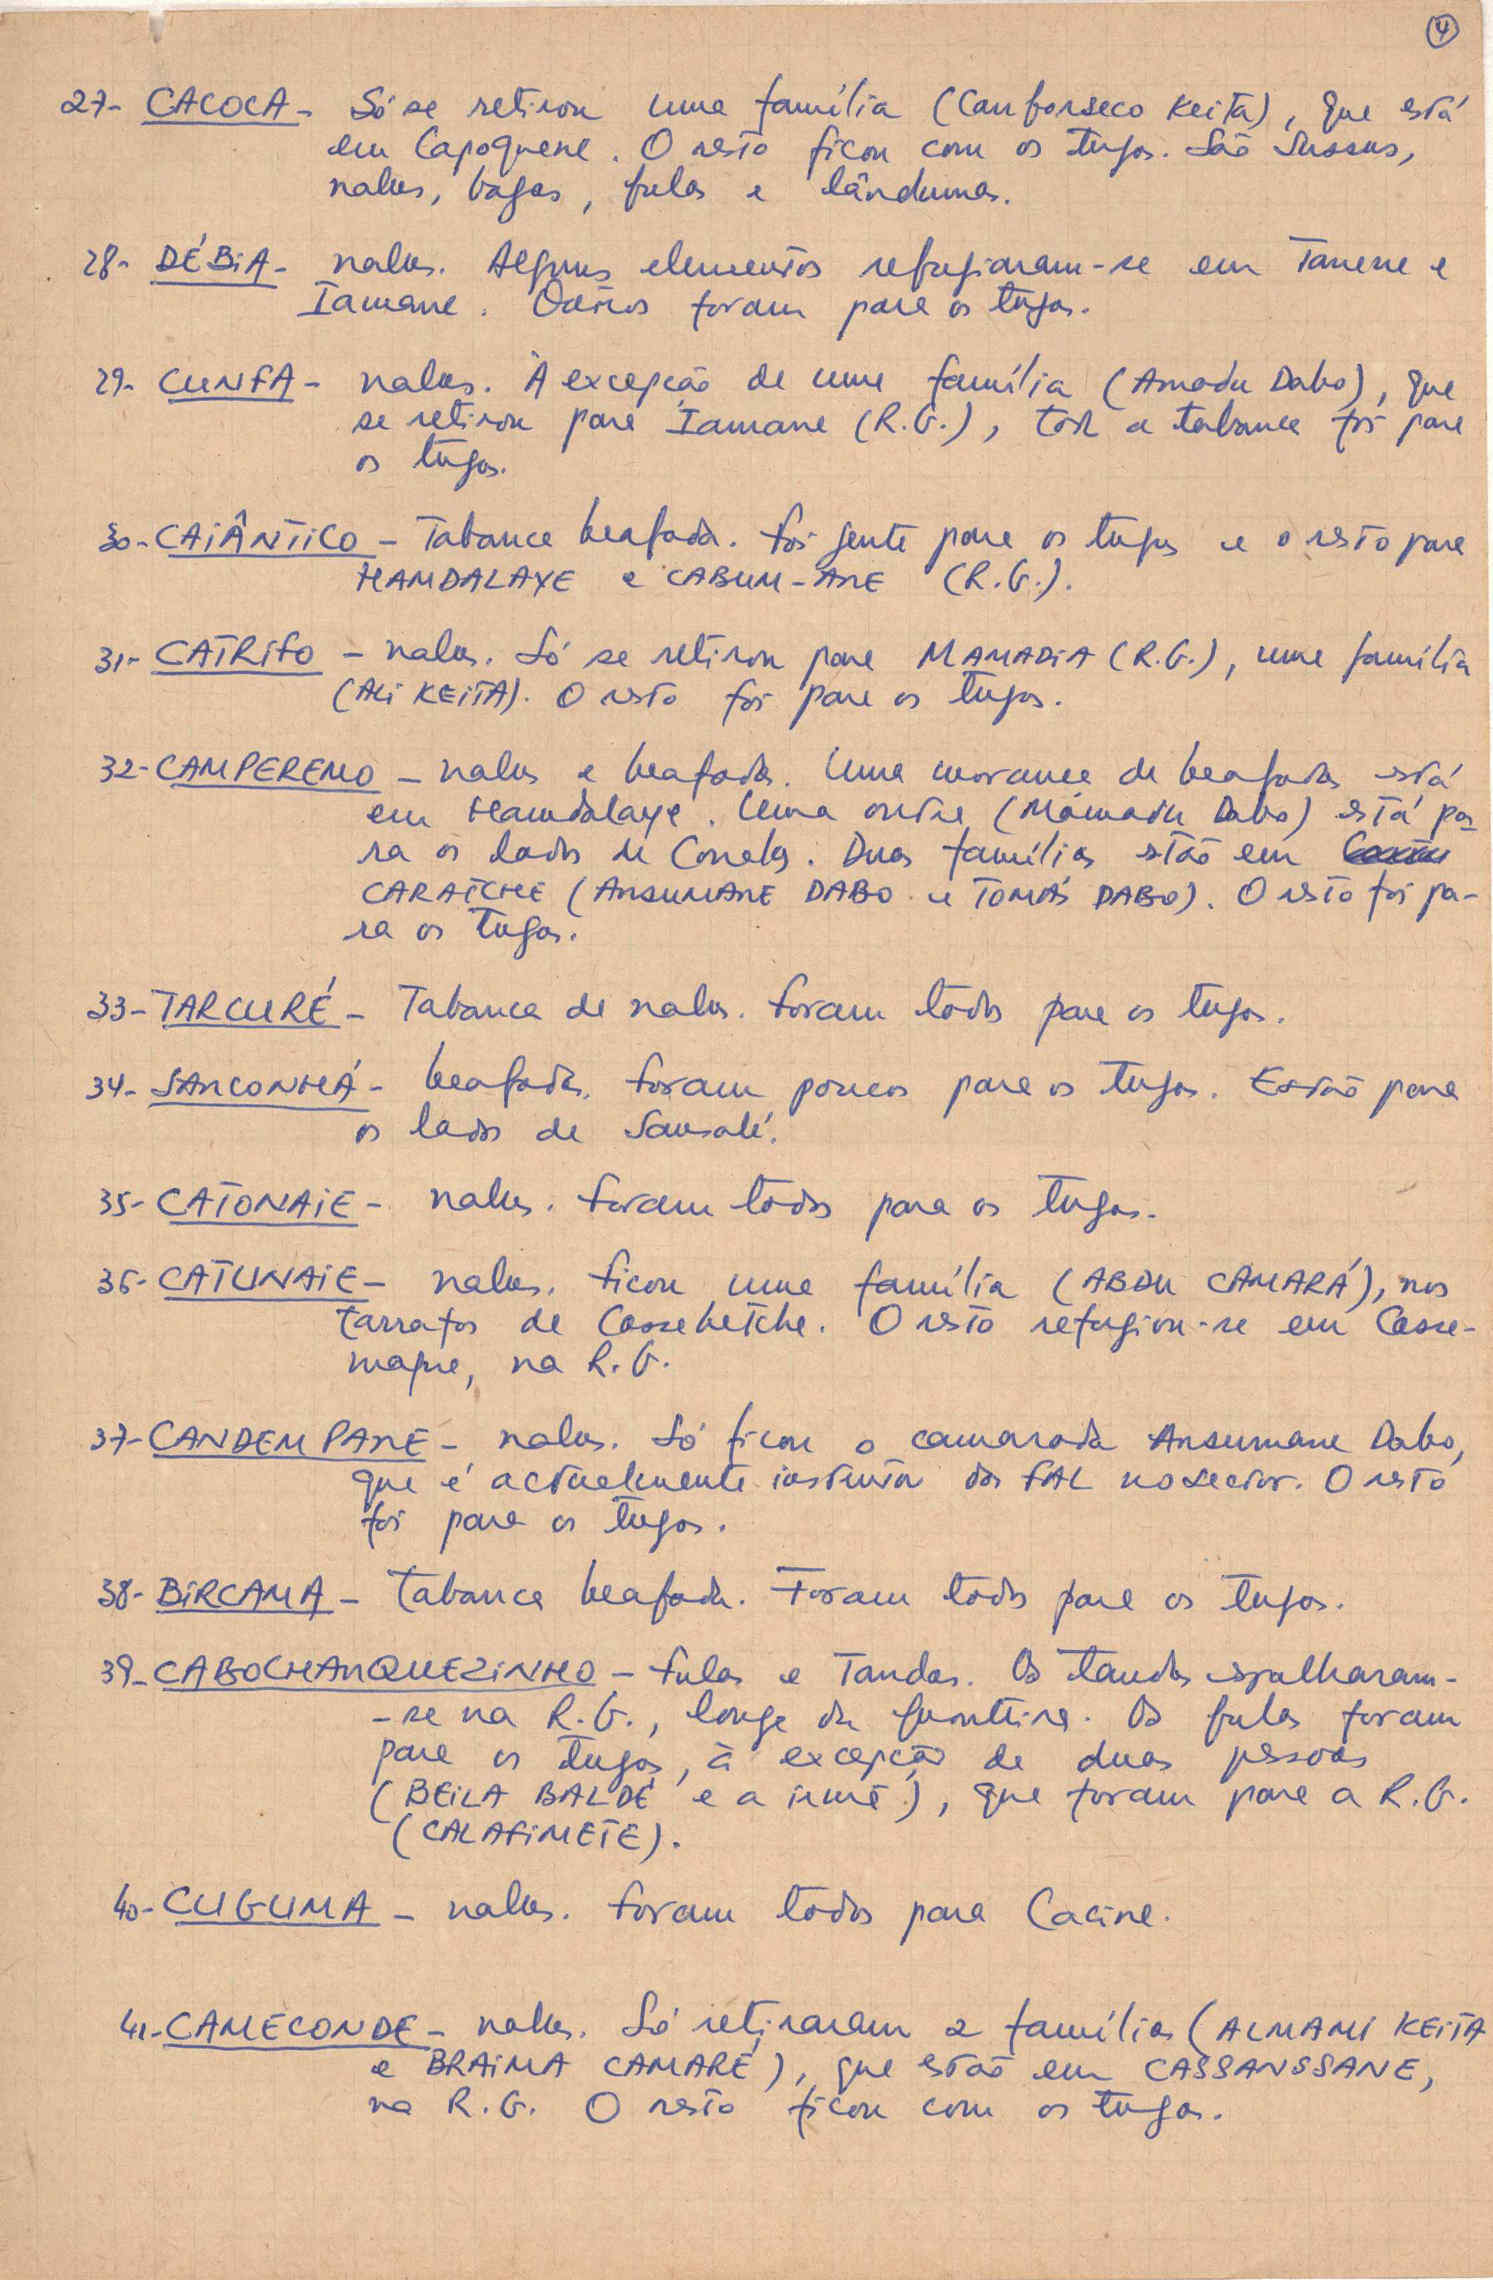 4
27- CACOCA - Só se retirou uma família (Canfonseco Keita), que está
em Capoquene. O resto ficou com os tugas. São Sussus,
nalus, bagas, fulas e lândumas.
28- DÉBIA - nalus. Alguns elementos refugiaram-se em Tanene e
Iamane. Outros foram para os tugas.
29- CUNFA - nalus. À excepção de uma família (Amadu Dabo), que
se retirou para Iamane (R.G.), toda a tabanca foi para
os tugas.
30- CAIÂNTICO - Tabanca beafada. Foi gente para os tugas e o resto para
HAMDALAYE e CABUM-ANE (R.G.).
31- CATRIFO - nalus. Só se retirou para MAMADIA (R.G.), uma família
(ALI KEITA). O resto foi para os tugas.
32- CAMPEREMO - nalus e beafadas. Uma morança de beafadas está
em Hamdalaye. Uma outra (Mámadu Dabo) está pa-
ra os lados de . Duas famílias estão em
CARATCHE (ANSUMANE DABO e TOMÁS DABO). O resto foi pa-
ra os tugas.
33- TARCURÉ - Tabanca de nalus. Foram todos para os tugas.
34- SANCONHÁ - beafadas. Foram poucos para os tugas. Estão para
os lados de Sansalé.
35- CATONAIE - nalus. Foram todos para os tugas.
36- CATUNAIE - nalus. Ficou uma família (ABDU CAMARÁ), nos
tarrafos de Cassebetche. O resto refugiou-se em Casse-
maque, na R.G.
37- CANDEMPANE - nalus. Só ficou o camarada Ansumane Dabo,
que é actualmente instrutor das FAL no sector. O resto
foi para os tugas.
38- BIRCAMA - Tabanca beafada. Foram todos para os tugas.
39- CABOCHANQUEZINHO - fulas e Tandas. Os tandas espalharam-
-se na R.G., longe da fronteira. Os fulas foram
para os tugas, à excepção de duas pessoas
(BEILA BALDÉ e a irmã), que foram para a R.G.
(CALAFIMETE).
40- CUGUMA - nalus. Foram todos para Cacine.
41- CAMECONDE - nalus. Só retiraram 2 famílias (ALMAMI KEITA
e BRAIMA CAMARÉ), que estão em CASSANSSANE,
na R.G. O resto ficou com os tugas.